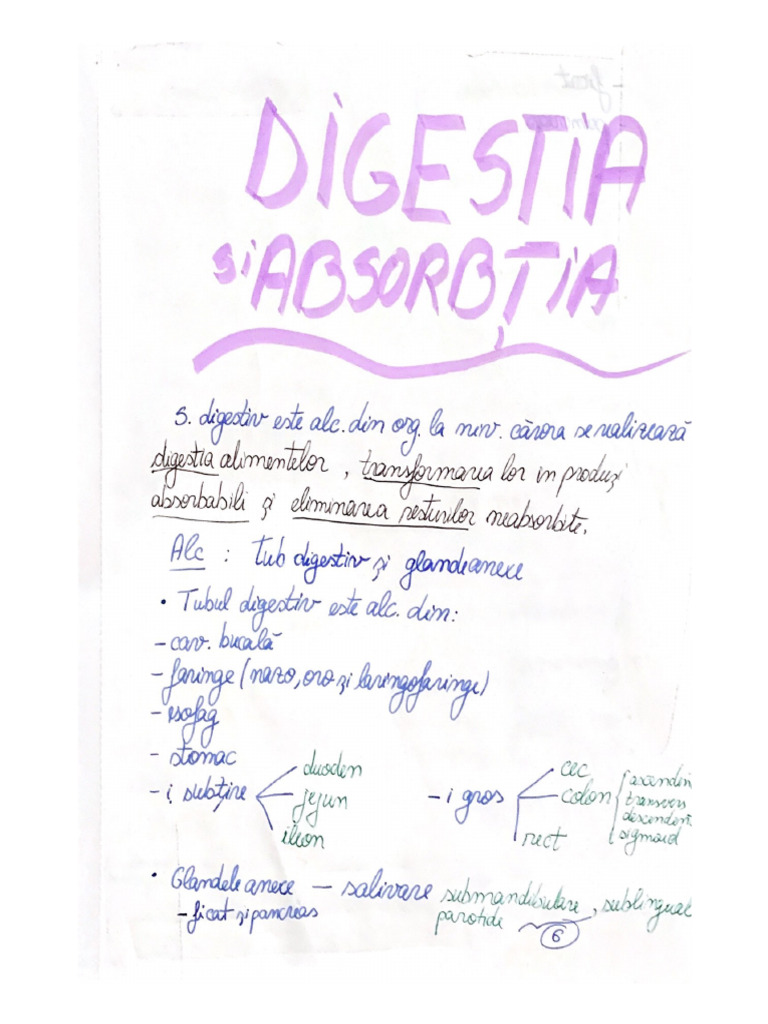 DIGESTIA
și ABSORBȚIA
S. digestiv este alc. din org. la niv. cărora se realizează
digestia alimentelor, transformarea lor in produși
absorbabili și eliminarea resturilor neabsorbite.
Alc : tub digestiv și glande anexe
• Tubul digestiv este alc. din:
- cav. bucală
- faringe (nazo, oro și laringofaringe)
- esofag
- stomac
- i subțire
duoden
jejun
ileon
- i gros
cec
colon
rect
ascenden
transvers
descendent
sigmoid
• Glandele anexe - salivare submandibulare, sublingual
parotide
- ficat și pancreas
6